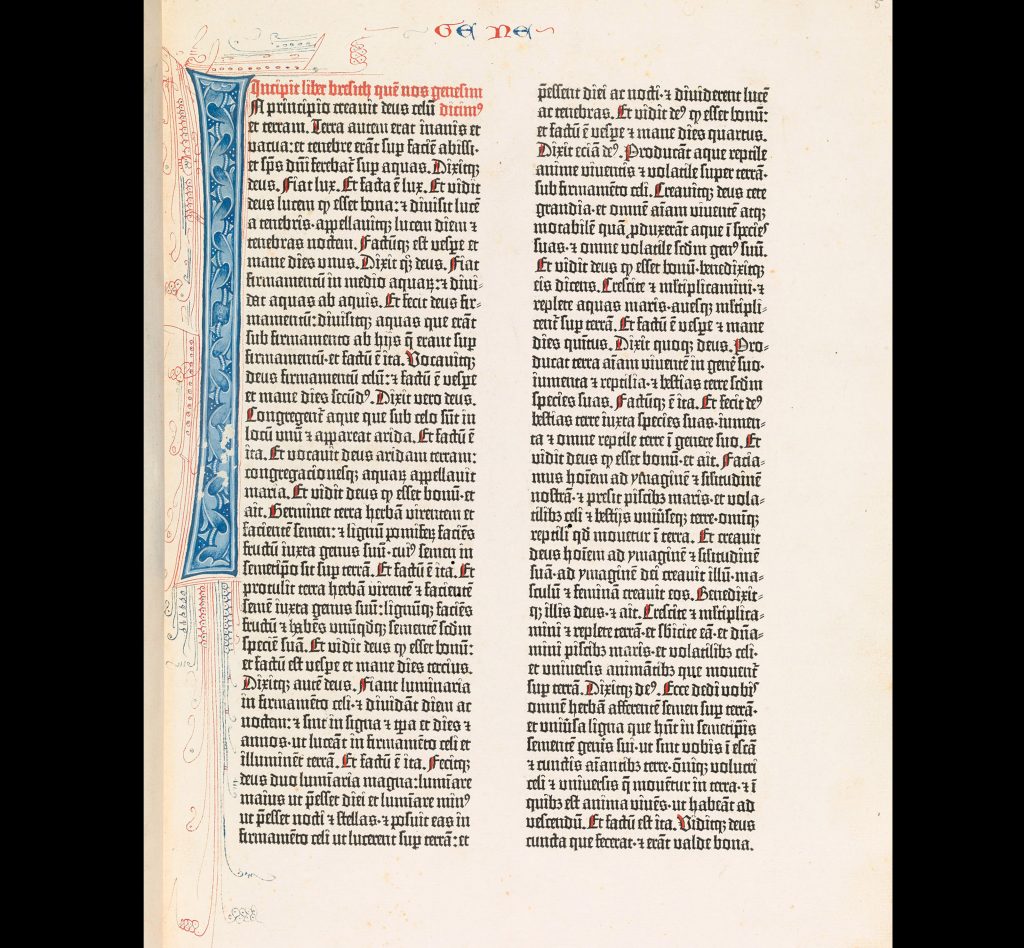 GENE
5
Incipit liber bresith quē nos genesim
In principio creavit deus celū dicimꝰ
et terram. Terra autem erat inanis et
vacua: et tenebre erāt sup faciē abissi.
et sp̄s dn̄i ferebat᷑ sup aquas. Dixitqꝫ
deus. Fiat lux. Et facta ē lux. Et vidit
deus lucem ꝙ esset bona: ⁊ divisit lucē
a tenebris. appellavitqꝫ lucem diem ⁊
tenebras noctem. Factūqꝫ est vespe et
mane dies unus. Dixit qꝫ deus. Fiat
firmamentū in medio aquaꝝ: ⁊ divi-
dat aquas ab aquis. Et fecit deus fir-
mamentū: divisitqꝫ aquas que erāt
sub firmamento ab hijs q̄ erant sup
firmamentū. et factū ē ita. Vocavitqꝫ
deus firmamentū celū: ⁊ factū ē vespe
et mane dies secūdꝰ. Dixit vero deus.
Congregent᷑ aque que sub celo sūt in
locū unū ⁊ appareat arida. Et factū ē
ita. Et vocavit deus aridam terram:
congregacionesqꝫ aquaꝝ appellavit
maria. Et vidit deus ꝙ esset bonū. et
ait. Germinet terra herbā virentem et
facientē semen: ⁊ lignū pomifeꝝ faciēs
fructū iuxta genus suū. cuiꝰ semen in
semetipo sit sup terrā. Et factū ē ita. Et
protulit terra herbā virentē ⁊ facientē
semē iuxta genus suū: lignūqꝫ faciēs
fructū ⁊ habēs unūqdqꝫ sementē scdm
speciē suā. Et vidit deus ꝙ esset bonū:
et factū est vespe et mane dies tercius.
Dixitqꝫ autē deus. Fiant luminaria
in firmamēto celi. ⁊ dividāt diem ac
noctem: ⁊ sint in signa ⁊ tp̄a et dies ⁊
annos. ut luceāt in firmamēto celi et
illuminēt terrā. Et factū ē ita. Fecitqꝫ
deus duo luminaria magna: lumiare
maius ut p̄esset diei et lumiare minꝰ
ut p̄esset nocti ⁊ stellas. ⁊ posuit eas in
firmamēto celi ut lucerent sup terrā: et
p̄essent diei ac nocti. ⁊ dividerent lucē
ac tenebras. Et vidit deꝰ ꝙ esset bonū:
et factū ē vespe ⁊ mane dies quartus.
Dixit eciā deꝰ. Producāt aque reptile
anime viventis ⁊ volatile super terrā.
sub firmamēto celi. Creavitqꝫ deus cete
grandia. et omnē aīam viventē atqꝫ
motabilē quā ꝓduxerāt aque ī species
suas. ⁊ omne volatile scdm genꝰ suū.
Et vidit deus ꝙ esset bonū. benedixitqꝫ
eis dicens. Crescite ⁊ mĺtiplicamini. ⁊
replete aquas maris. avesqꝫ mĺtipli-
cent᷑ sup terrā. Et factū ē vespe ⁊ mane
dies quītus. Dixit quoqꝫ deus. Pro-
ducat terra aīam viventē in genē suo.
iumenta ⁊ reptilia. ⁊ bestias terre scdm
species suas. Factūqꝫ ē ita. Et fecit deꝰ
bestias terre iuxta species suas. iumen-
ta ⁊ omne reptile terre ī genere suo. Et
vidit deus ꝙ esset bonū. et ait. Facia-
mus hoīem ad ymaginē ⁊ sĺitudinē
nostrā. ⁊ presit piscibꝫ maris. et vola-
tilibꝫ celi ⁊ bestijs univseqꝫ terre. omiqꝫ
reptili qd movetur ī terra. Et creavit
deus hoīem ad ymaginē ⁊ sĺitudinē
suā. ad ymaginē dei creavit illū. ma-
sculū ⁊ feminā creavit eos. Benedixit-
qꝫ illis deus. ⁊ ait. Crescite ⁊ mĺtiplica-
mini ⁊ replete terrā. et sbicite eā. et dn̄a-
mini piscibꝫ maris. et volatilibꝫ celi.
et universis animātibꝫ que movent᷑
sup terrā. Dixitqꝫ deꝰ. Ecce dedi vobis
omnē herbā afferentē semen sup terrā.
et univsa ligna que hn̄t in semetip̄is
sementē genis sui. ut sint vobis ī escā
⁊ cunctis aīantibꝫ terre. omiqꝫ volucri
celi ⁊ universis q̄ movētur in terra. ⁊ ī
quibꝫ est anima vivēs. ut habeāt ad
vescendū. Et factū est ita. Viditqꝫ deus
cuncta que fecerat. ⁊ erāt valde bona.